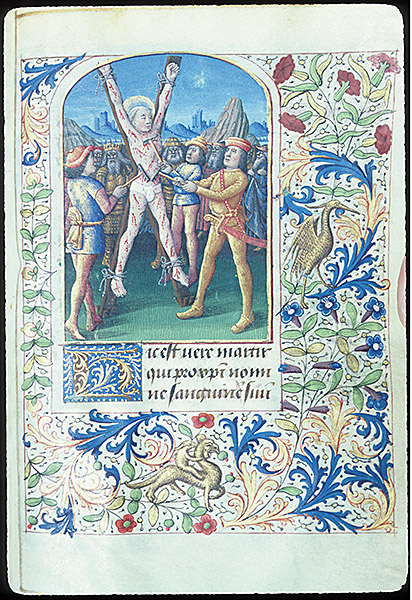 Hic est vere martir
qui pro xpi nomi
ne sanguinē suū